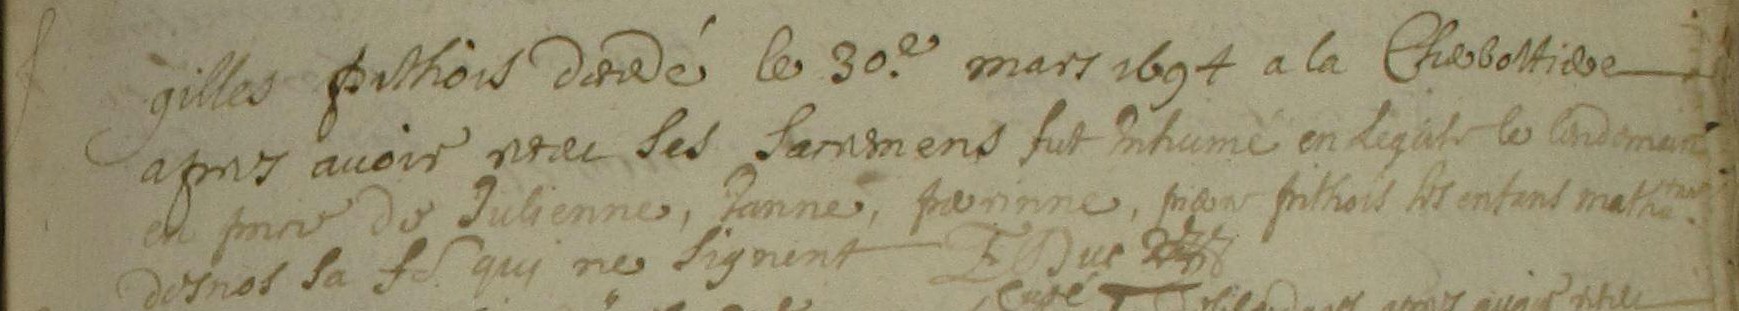 gilles pithois decedé le 30.e mars 1694 a la
apres auoir receu ses sacremens fut Inhumé en leglise le lendemain
en pnce de Julienne, Janne, perinne, pierre pithois ses enfans math
desnos sa fe. qui ne signent Duc
curé apres auoir receu